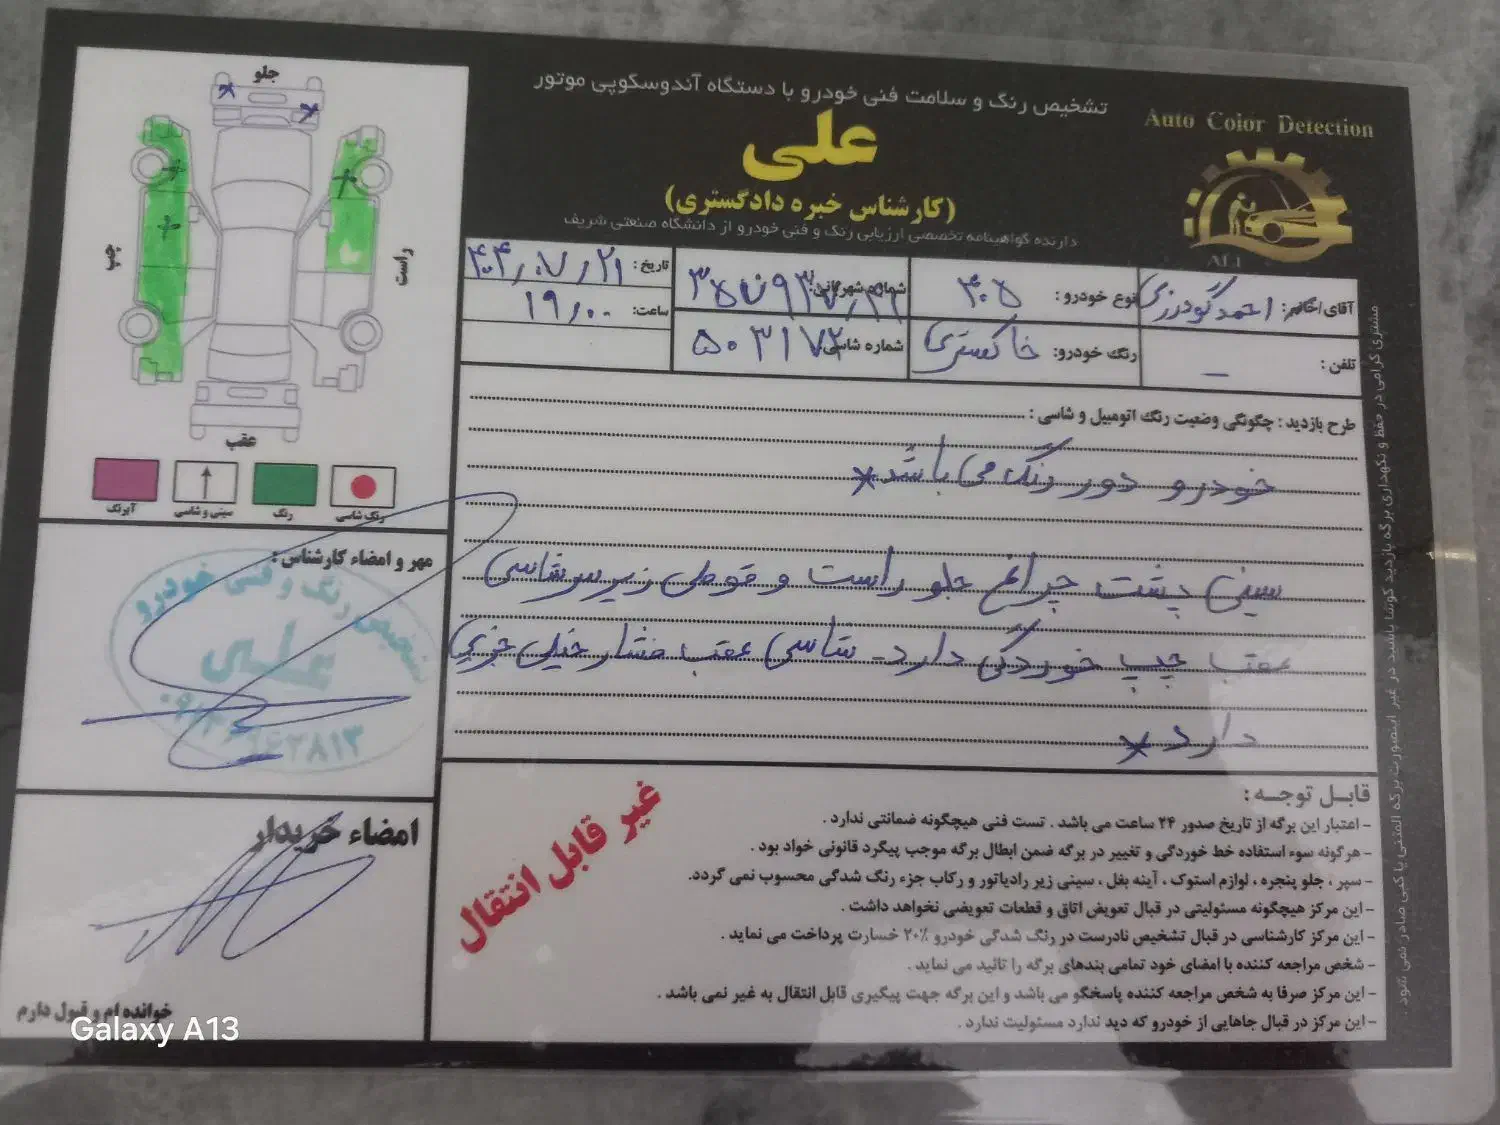 تشخیص رنگ و سلامت فنی خودرو با دستگاه آندوسکوپی موتور
Auto Color Detection
علی
(کارشناس خبره دادگستری)
دارنده گواهینامه تخصصی ارزیابی رنگ و فنی خودرو از دانشگاه صنعتی شریف
ALI
جلو
راست
چپ
عقب
رنگ شاسی
رنگ
سینی و شاسی
آبرنگ
آقای/خانم: احمد گودرزی
نوع خودرو: ۴۰۵
شماره شهربانی:
تاریخ: ۴۰۴/۰۷/۲۱
تلفن: –
رنگ خودرو: خاکستری
شماره شاسی: ۵۰۳۱۷۲
ساعت: ۱۹/۰۰
طرح بازدید: چگونگی وضعیت رنگ اتومبیل و شاسی:
خودرو دور رنگ می باشد*
سینی پشت چراغ جلو راست و قوطی زیر سر شاسی
عقب چپ خوردگی دارد- شاسی عقب فشار خیلی جزیی
دارد*
مهر و امضاء کارشناس:
تشخیص رنگ و فنی خودرو
علی
امضاء خریدار
خوانده ام و قبول دارم
غیر قابل انتقال
قابل توجه:
- اعتبار این برگه از تاریخ صدور ۲۴ ساعت می باشد. تست فنی هیچگونه ضمانتی ندارد.
- هرگونه سوء استفاده خط خوردگی و تغییر در برگه ضمن ابطال برگه موجب پیگرد قانونی خواد بود.
- سپر، جلو پنجره، لوازم استوک، آینه بغل، سینی زیر رادیاتور و رکاب جزء رنگ شدگی محسوب نمی گردد.
- این مرکز هیچگونه مسئولیتی در قبال تعویض اتاق و قطعات تعویضی نخواهد داشت.
- این مرکز کارشناسی در قبال تشخیص نادرست در رنگ شدگی خودرو ۲۰٪ خسارت پرداخت می نماید.
- شخص مراجعه کننده با امضای خود تمامی بندهای برگه را تائید می نماید.
- این مرکز صرفا به شخص مراجعه کننده پاسخگو می باشد و این برگه جهت پیگیری قابل انتقال به غیر نمی باشد.
- این مرکز در قبال جاهایی از خودرو که دید ندارد مسئولیت ندارد.
مشتری گرامی در حفظ و نگهداری برگه بازدید کوشا باشید در غیر اینصورت برگه المثنی یا کپی صادر نمی شود.
Galaxy A13